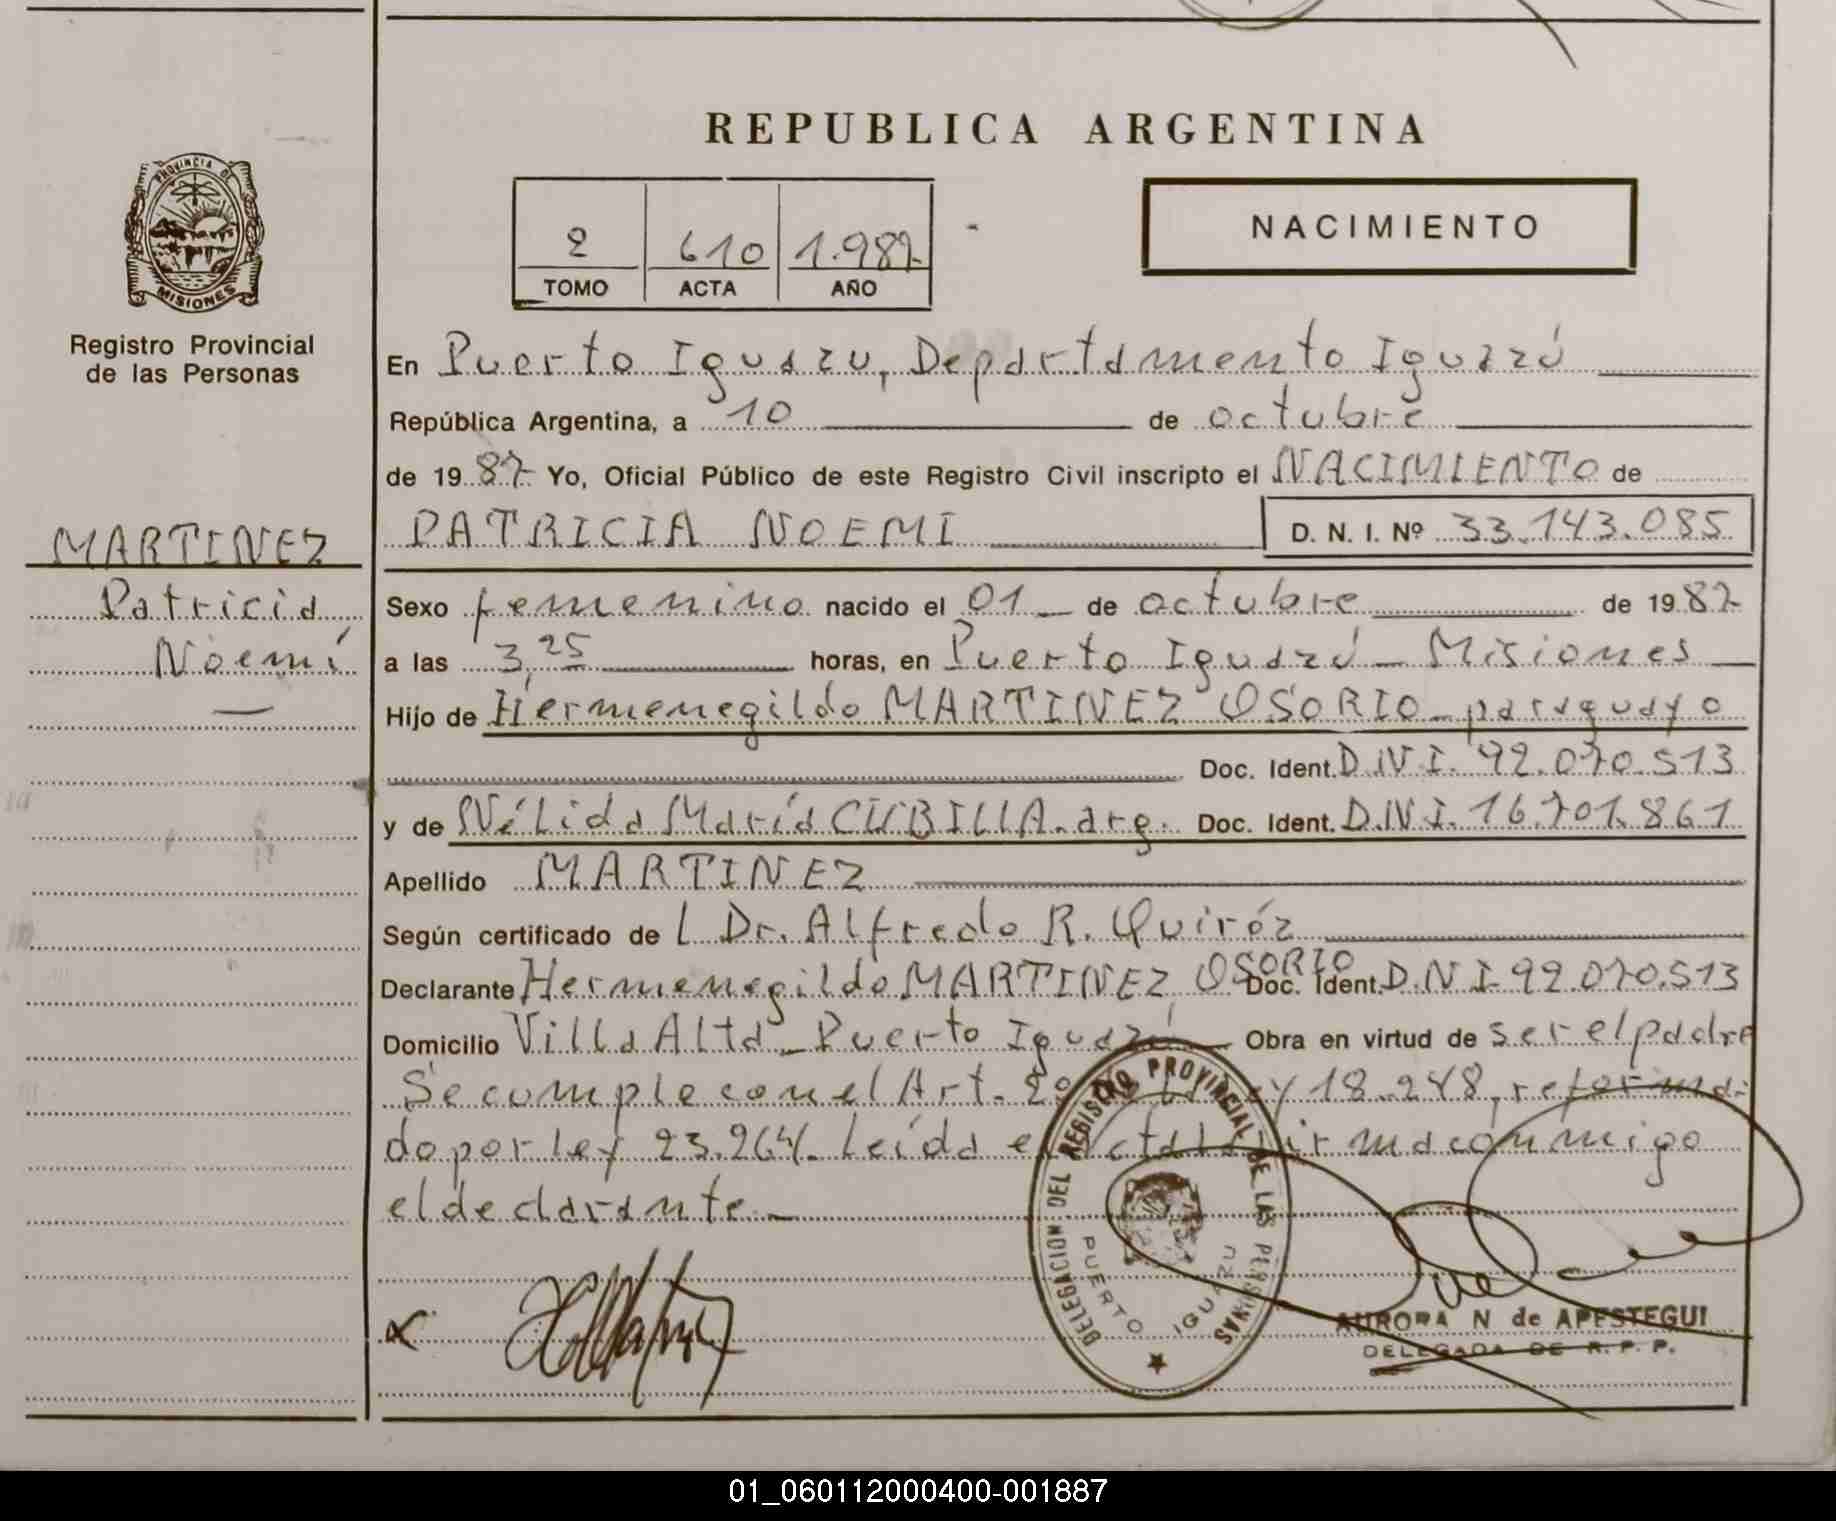 REPUBLICA ARGENTINA
PROVINCIA DE
MISIONES
Registro Provincial
de las Personas
2 610 1.987
TOMO ACTA AÑO
NACIMIENTO
En Puerto Iguazu, Departamento Iguazú
República Argentina, a 10 de octubre
de 1987 Yo, Oficial Público de este Registro Civil inscripto el NACIMIENTO de
PATRICIA NOEMI D. N. I. Nº 33.143.085
MARTINEZ
Patricia
Noemí
Sexo femenino nacido el 01 de octubre de 1987
a las 3,25 horas, en Puerto Iguazú - Misiones
Hijo de Hermenegildo MARTINEZ OSORIO - paraguayo
Doc. Ident. D.N.I. 92.070.513
y de Nélida María CUBILLA. arg. Doc. Ident. D.N.I. 16.701.861
Apellido MARTINEZ
Según certificado de l Dr. Alfredo R. Quiróz
Declarante Hermenegildo MARTINEZ OSORIO Doc. Ident. D.N.I. 92.070.513
Domicilio Villa Alta - Puerto Iguazú Obra en virtud de ser el padre
Se cumple con el Art. 2º Ley 18.248, reforma-
do por ley 23.264. Leída el acta la firma conmigo
el declarante.-
DELEGACION DEL REGISTRO PROVINCIAL DE LAS PERSONAS
PUERTO IGUAZU
AURORA N de APESTEGUI
DELEGADA DE R. P. P.
01_060112000400-001887